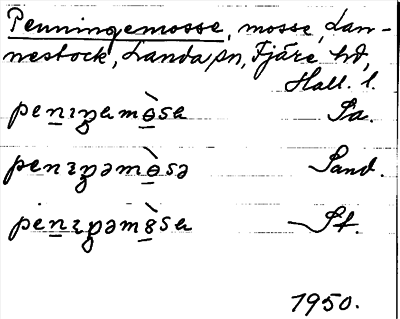 Penningemosse, mosse, Lan-
nestock, Landa sn, Fjäre hd,
Hall. l.
penıŋɐmòsɐ Sa.
penıŋəmòsə Sand.
penıŋəmòsɐ St.
1950.